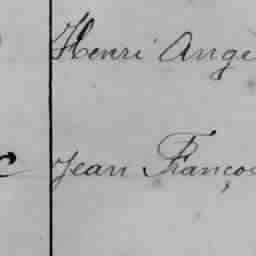 Henri Ange
Jean Franço